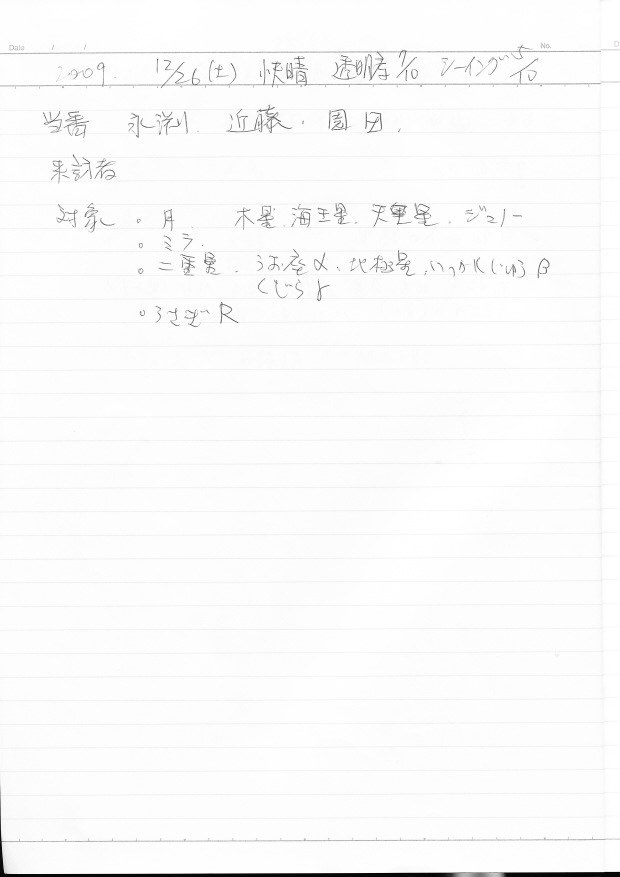 Date / / No. D
2009. 12/26 (土) 快晴 透明度 7/10 シーイング 5/10
当番 永渕. 近藤. 園田.
来訪者
対象 。月. 木星. 海王星. 天王星. ジュノー
。ミラ.
。二重星. うお座α. 北極星. いっかくじゅうβ
くじらγ
。うさぎR